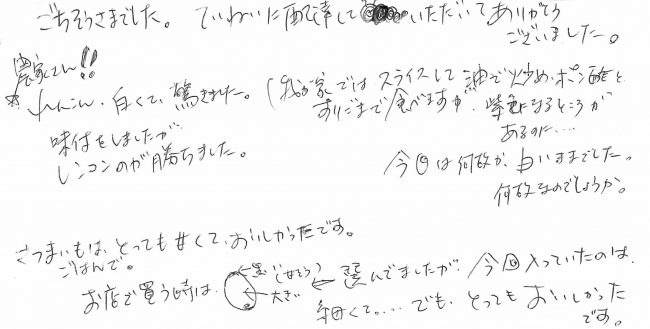 ごちそうさまでした。ていねいに配達して いただいてありがとう
ございました。
農家さん!!
れんこん、白くて、驚きました。(我が家ではスライスして油で炒め、ポン酢と
すりごまで食べますが、紫色になるところが
あるのに....
味付をしましたが
レンコンのが勝ちました。
今回は何故か、白いままでした。
何故なのでしょうか。
さつまいもは、とっても甘くて、おいしかったです。
ごはんで。
お店で買う時は、
←黒(甘そう)
←大きい
← 選んでましたが、今回入っていたのは、
細くて.... でも、とってもおいしかった
です。